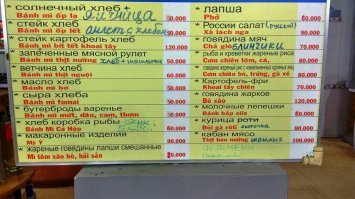 * солнечный хлеб + яичница
Bánh mì ốp la 50.000
* стейк хлеб омлет с хлебом
Bánh mì ốp lết 50.000
* стейк картофель хлеб
Bánh mì bít tết khoai tây 120.000
* запеченные мясной рулет
Bánh mì thịt nướng хлеб + шашлык 60.000
* ветчина хлеб
Bánh mì thịt nguội 60.000
* масло хлеб
Bánh mì bơ 50.000
* сыра хлеба
Bánh mì phomat 60.000
* бутерброды варенье
Bánh mì mứt, dâu, cam, thơm 50.000
* хлеб коробка рыбы
Bánh Mì Cá Hộp 60.000
* макаронные изделия
Mỳ Ý 90.000
* жареные говядины лапши смешанные
Mì tôm xào bò, hải sản
* лапша
Phở 60.000
* России салат (русский)
Xà lách nga 60.000
* говядина мяч
Chả giò блинчики 70.000
Cơm chiên tôm, cá,
Cơm chiên bò, trứng, gà xé 60.000
* Картофель-фри
Khoai tây chiên 70.000
* говядина жаркое
Bò xào 120.000
* молочные лепешки
Bánh bắp sữa 60.000
* курица роти
Đùi gà rôti 60.000
* кабан мясо
Thịt heo nướng шашлык 100.000